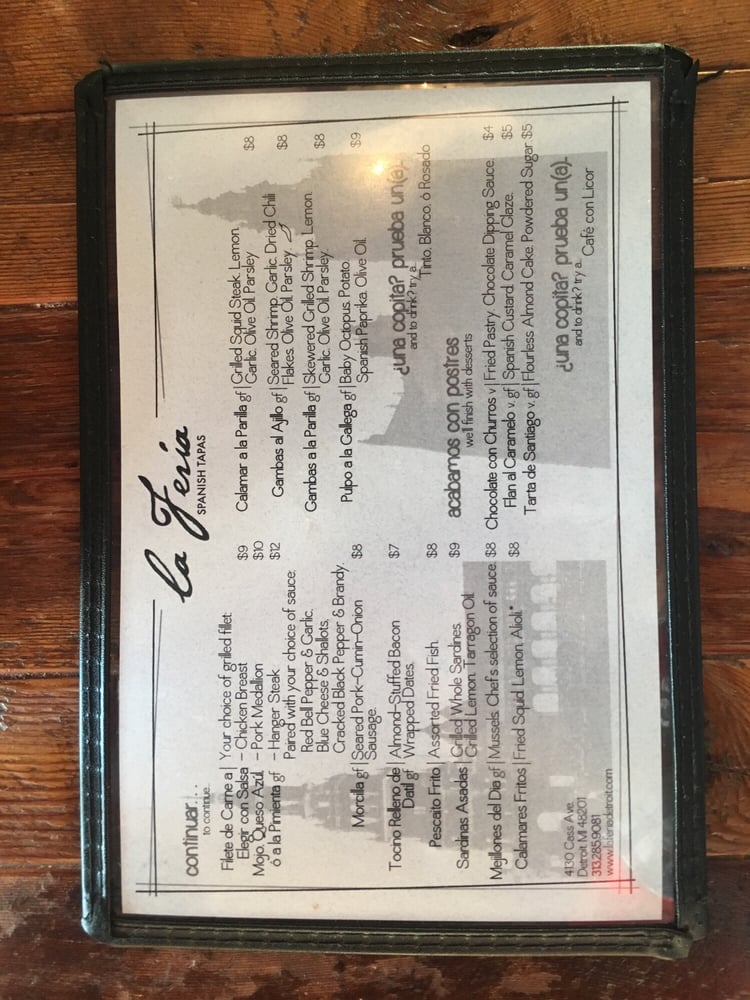 la Feria
SPANISH TAPAS
continuar...
to continue...
Filete de Carne a | Your choice of grilled fillet
Elegir con Salsa - Chicken Breast $9
Mojo, Queso Azúl, - Pork Medallion $10
ó a la Pimienta gf - Hanger Steak $12
Paired with your choice of sauce:
Red Bell Pepper & Garlic.
Blue Cheese & Shallots,
Cracked Black Pepper & Brandy.
Morcilla gf | Seared Pork-Cumin-Onion $8
Sausage.
Tocino Relleno de | Almond-Stuffed Bacon $7
Datil gf Wrapped Dates.
Pescaito Frito | Assorted Fried Fish. $8
Sardinas Asadas | Grilled Whole Sardines. $9
Grilled Lemon. Tarragon Oil.
Mejillones del Día gf | Mussels. Chef's selection of sauce. $8
Calamares Fritos | Fried Squid. Lemon. Alioli.* $8
4130 Cass Ave.
Detroit MI 48201
313.285.9081
www.laferiadetroit.com
Calamar a la Parilla gf | Grilled Squid Steak. Lemon. $8
Garlic. Olive Oil. Parsley.
Gambas al Ajillo gf | Seared Shrimp. Garlic. Dried Chili $8
Flakes. Olive Oil. Parsley.
Gambas a la Parilla gf | Skewered Grilled Shrimp. Lemon. $8
Garlic. Olive Oil. Parsley.
Pulpo a la Gallega gf | Baby Octopus. Potato. $9
Spanish Paprika. Olive Oil.
¿una copita? prueba un(a)...
and to drink? try a...
Tinto, Blanco, ó Rosado
acabamos con postres
we'll finish with desserts
Chocolate con Churros v | Fried Pastry. Chocolate Dipping Sauce. $4
Flan al Caramelo v, gf | Spanish Custard. Caramel Glaze. $5
Tarta de Santiago v, gf | Flourless Almond Cake. Powdered Sugar $5
¿una copita? prueba un(a)...
and to drink? try a...
Café con Licor